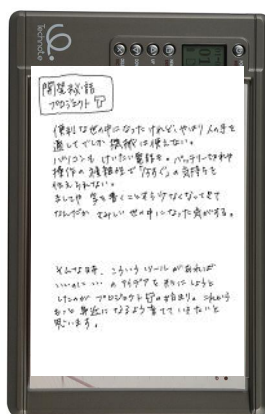 Technote
開発秘話
プロジェクト T
便利な世の中になったけれど、やはり人の手を
通してでしか 機械は使えない。
パソコンも けいたい電話も、バッテリー切れや
操作の複雑性で「今すぐ」の気持ちを
伝えられない。
ましてや 字を書くことすら少なくなってきて
なんだか さみしい世の中になった気がする。
そんな時、こういうツールがあれば
いいのに… のアイデアを形にしようと
したのが プロジェクト T の始まり。これから
もっと身近になるよう育てていきたいと
思います。